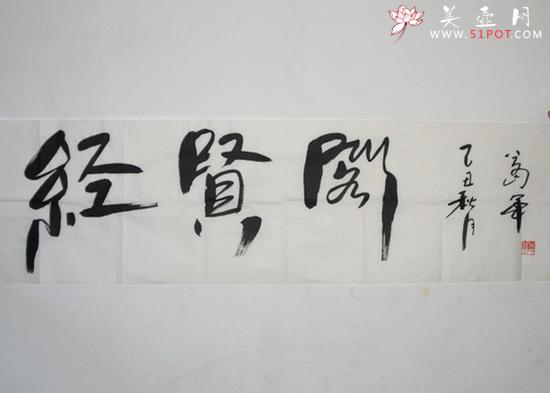 美壶网
WWW.51POT.COM
経賢閣
己丑秋月
高军